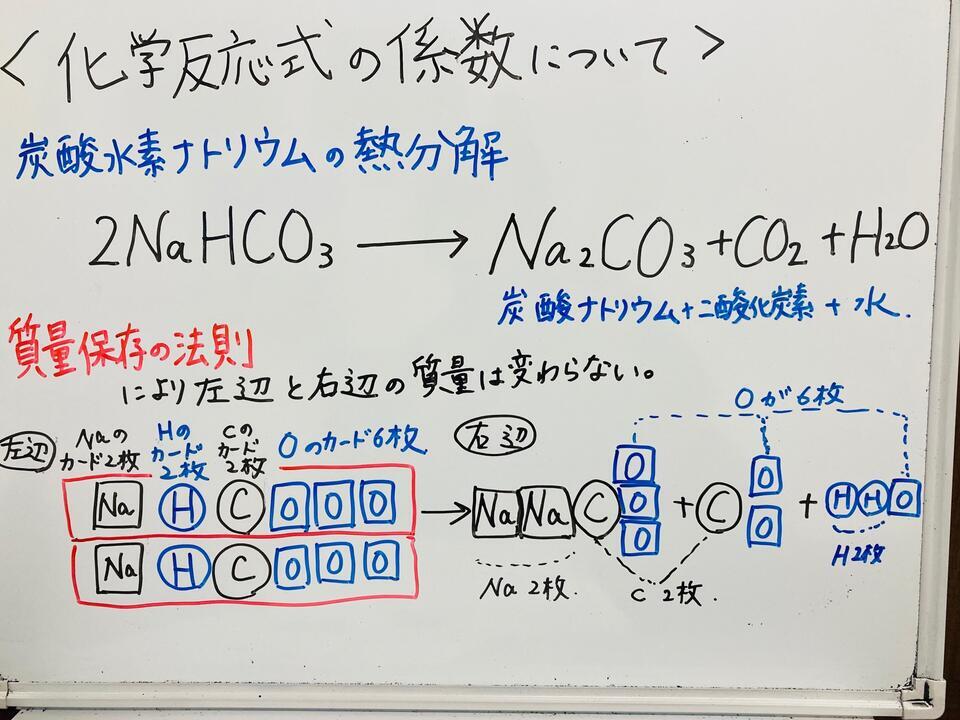 <化学反応式の係数について>
炭酸水素ナトリウムの熱分解
2NaHCO₃ → Na₂CO₃+CO₂+H₂O
炭酸ナトリウム+二酸化炭素+水.
質量保存の法則
により左辺と右辺の質量は変わらない。
左辺
Naの
カード2枚
Hの
カード
2枚
Cの
カード
2枚
Oのカード6枚
Na H C O O O
Na H C O O O
→
右辺
Oが6枚
Na Na C O O O + C O O + H H O
Na 2枚.
C 2枚.
H2枚